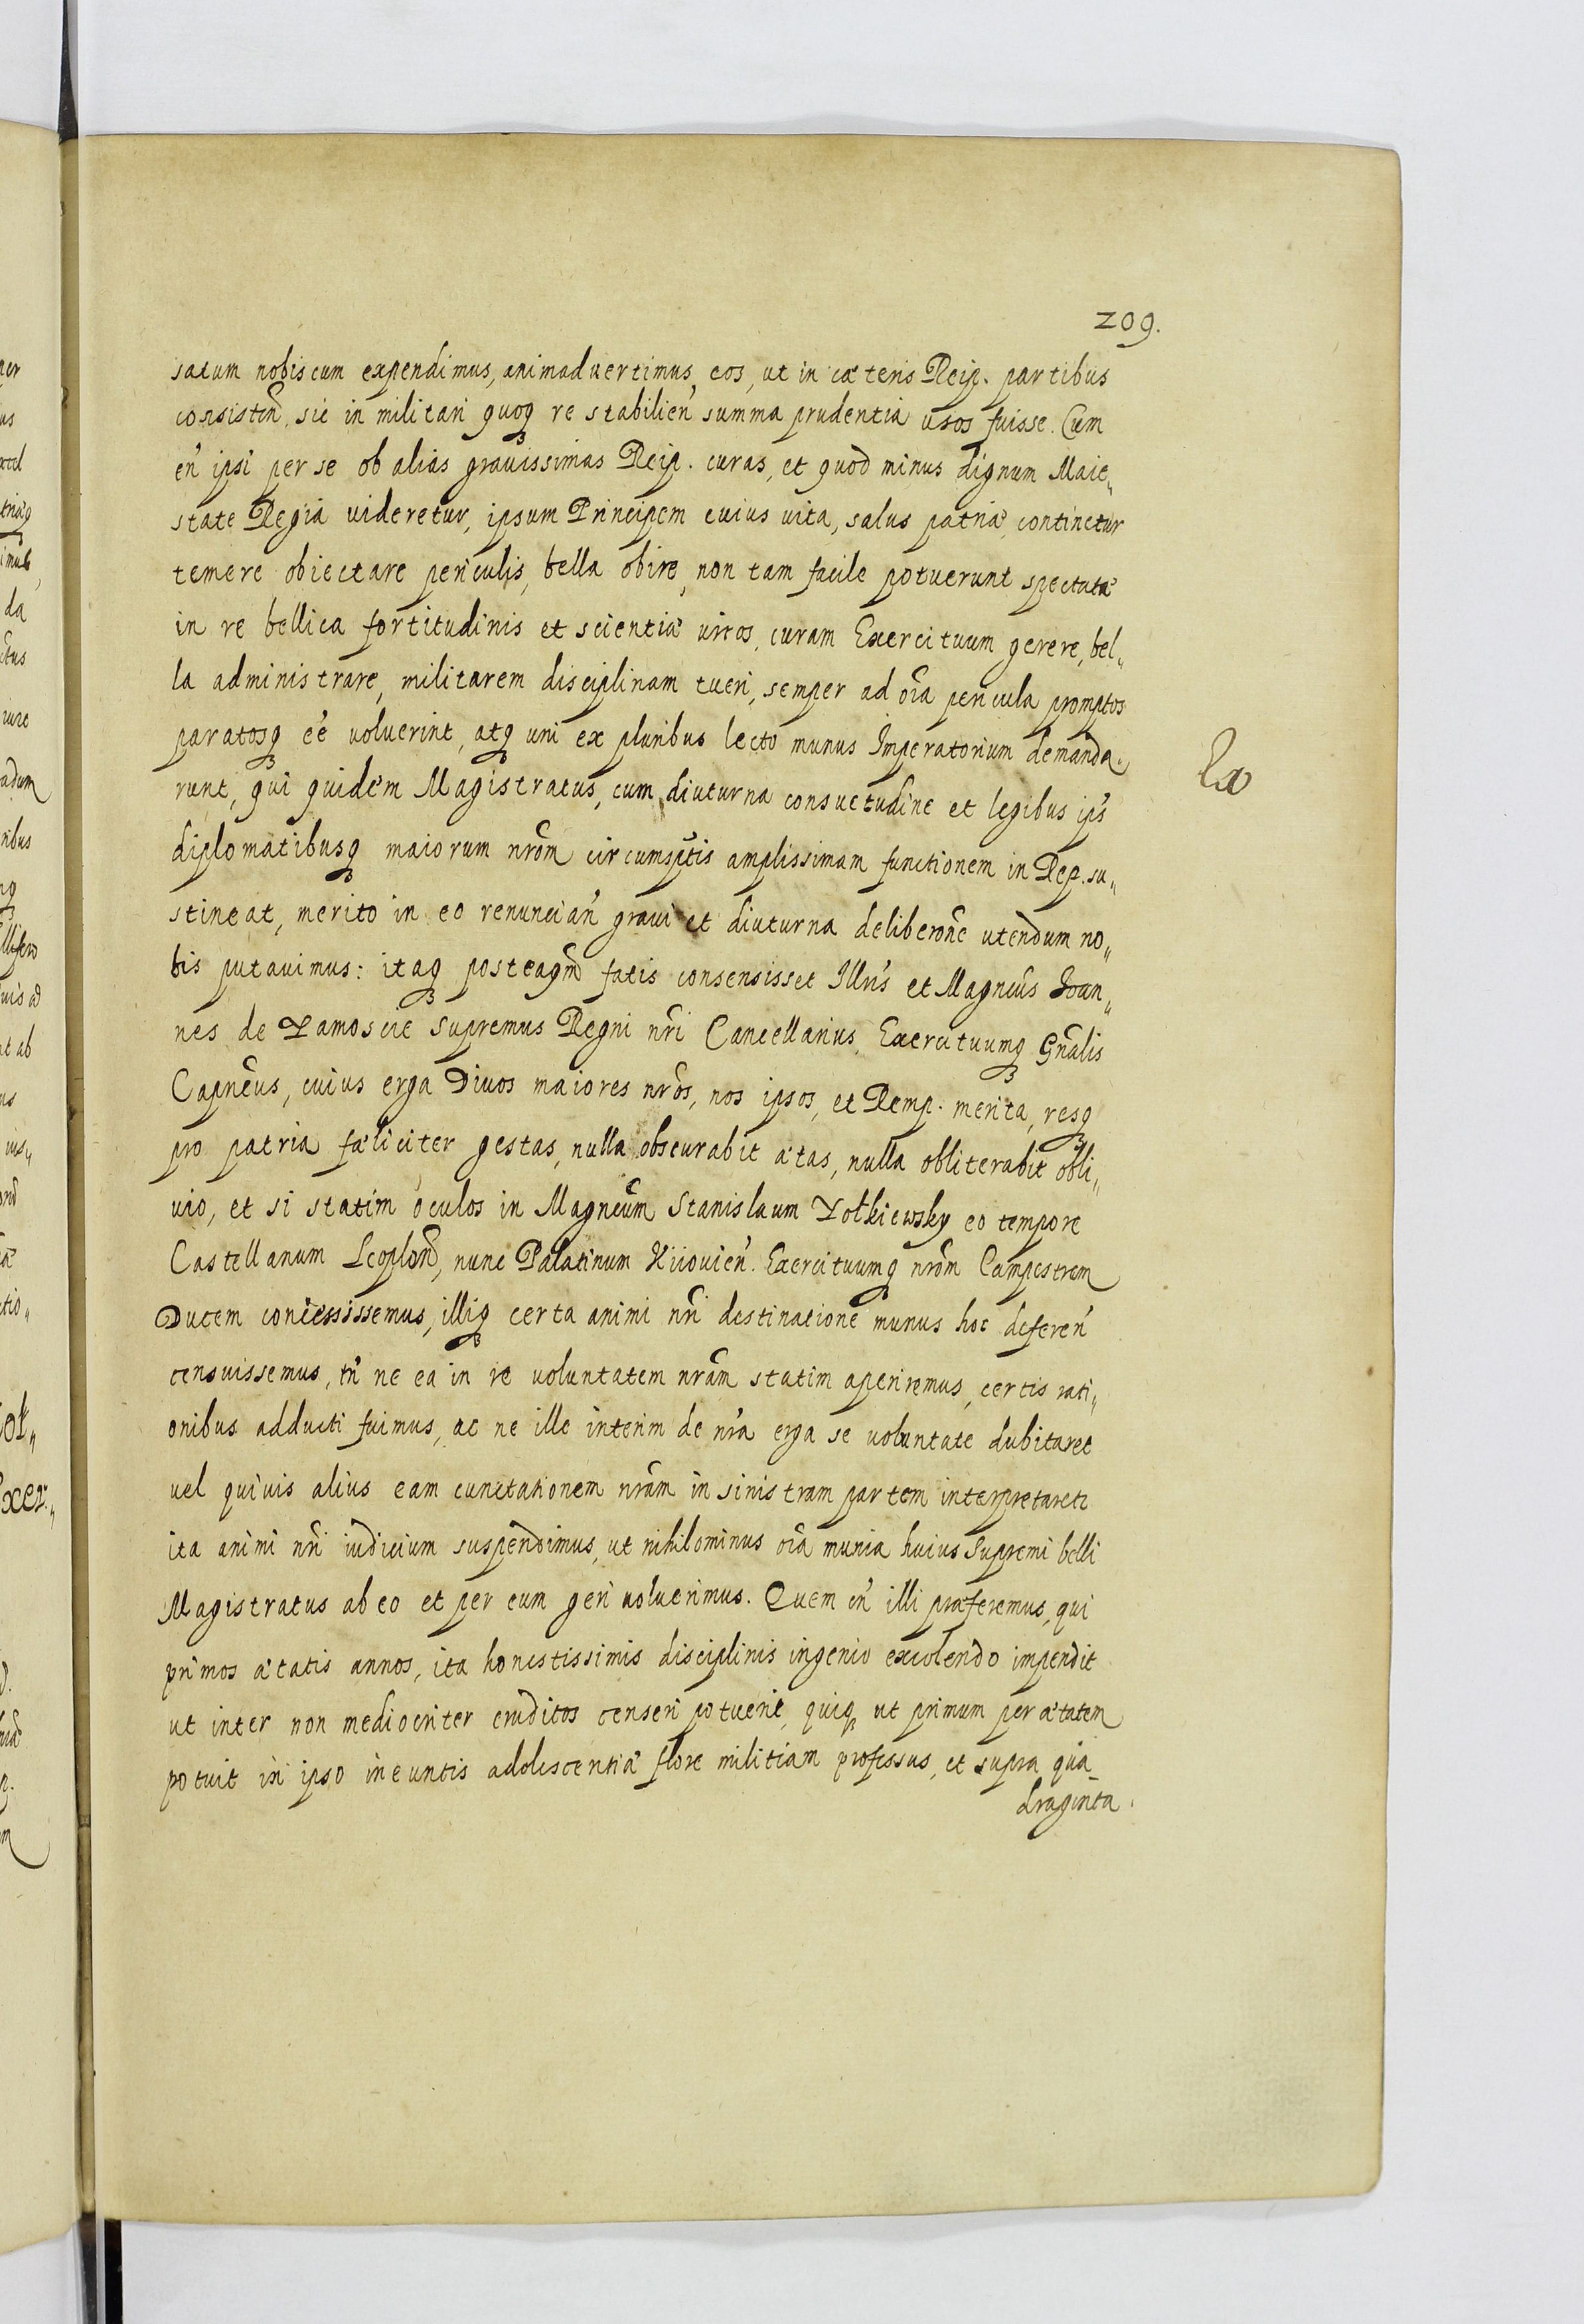 209.
satum nobiscum expendimus, animaduertimus, eos, ut in cæteris Reip. partibus
consisten̄, sic in militari quoq₃ re stabilien̄ summa prudentia usos fuisse. Cum
en̄ ipsi per se ob alias grauissimas Reip. curas, et quod minus dignum Maie„
state Regia uideretur, ipsum Principem cuius uita, salus patriæ continetur
temere obiectare periculis, bella obire, non tam facile potuerunt spectatæ
in re bellica fortitudinis et scientiæ uiros, curam Exercituum gerere, bel„
la administrare, militarem disciplinam tueri, semper ad oīa pericula promptos
paratosq₃ eē uoluerint, atq₃ uni ex pluribus lecto munus Imperatorium demanda„
runt, qui quidem Magistratus, cum diuturna consuetudine et legibus ip̄s
diplomatibusq₃ maiorum nr̄om circumsp̄tis amplissimam functionem in Rep. su„
stineat, merito in eo renuncian̄ graui et diuturna deliberōne utendum no„
bis putauimus: itaq₃ posteaqm̄ fatis consensisset Illrīs et Magncūs Ioan„
nes de Zamoscie Supremus Regni nr̄i Cancellarius, Exercituumq₃ Gnālis
Capnēus, cuius erga Diuos maiores nr̄os, nos ipsos, et Remp. merita, resq₃
pro patria fæliciter gestas, nulla obscurabit ætas, nulla obliterabit obli„
uio, et si statim oculos in Magncūm Stanislaum Zołkiewsky eo tempore
Castellanum Leopln̄, nunc Palatinum Kiiouien̄. Exercituumq₃ nr̄om Campestrem
Ducem coniecissemus, illiq₃ certa animi nr̄i destinatione munus hoc deferen̄
censuissemus, tn̄ ne ea in re uoluntatem nr̄am statim aperiremus, certis rati„
onibus adducti fuimus, ac ne ille interim de nr̄a erga se uoluntate dubitaret
uel quiuis alius eam cunctationem nr̄am in sinistram partem interpretaretr
ita animi nr̄i iudicium suspendimus, ut nihilominus oīa munia huius Supremi belli
Magistratus ab eo et per eum geri uoluerimus. Quem en̄ illi præferemus, qui
primos ætatis annos, ita honestissimis disciplinis ingenio excolendo impendit
ut inter non mediocriter eruditos censeri potuerit, quiq₃ ut primum per ætatem
potuit in ipso ineuntis adolescentiæ flore militiam professus, et supra qua_
draginta